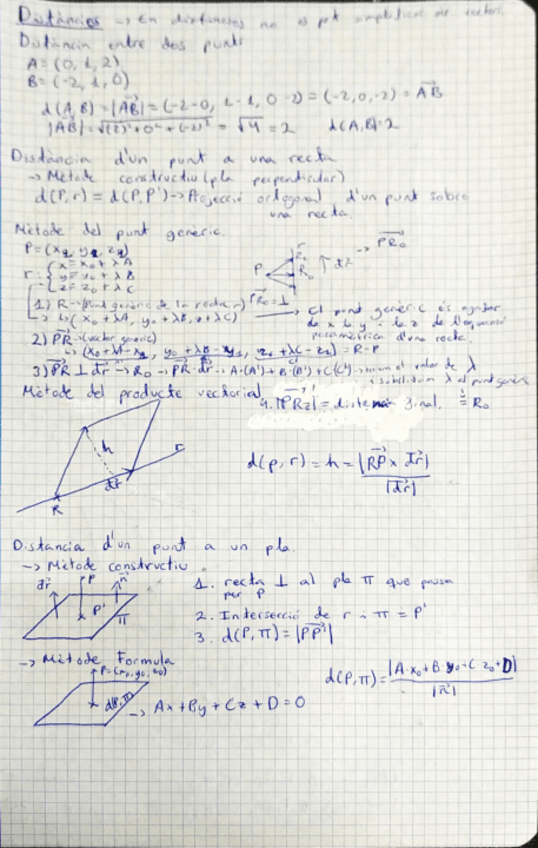 Distàncies → En distàncies no es pot simplificar de vectors.
Distància entre dos punts
A = (0, 1, 2)
B = (-2, 1, 0)
d(A,B) = |AB| = (-2-0, 1-1, 0-2) = (-2, 0, -2) = AB
|AB| = √(2)²+0²+(-2)² = √4 = 2 d(A,B)=2
Distància d'un punt a una recta
→ Mètode constructiu (pla perpendicular)
d(P,r) = d(P,P') → Projecció ortogonal d'un punt sobre
una recta.
Mètode del punt genèric.
r: { x = x₀ + λA
y = y₀ + λB
z = z₀ + λC
P R₀ dr → PR₀
1) R → (Punt genèric de la recta r) PR₀ = ⊥ → El punt genèric és
↳ (x₀ + λA, y₀ + λB, z + λC)
de x la y i la z de l'equació
paramètrica d'una recta.
2) PR → (vector genèric)
= R-P
3) PR ⊥ dr → R₀ → PR · dr = A·(A') + B·(B') + C(C') → el valor de λ
i substituim λ al punt genèric
= R₀
Mètode del producte vectorial
h
dr
r
R
d(p, r) = h = |RP x dr| / |dr|
Distancia d'un punt a un pla.
→ Mètode constructiu
dr P n
P' π
1. recta ⊥ al pla π que passa
per P
2. Intersecció de r i π = P'
3. d(P, π) = |PP'|
→ Mètode Formula
P = (x₀, y₀, z₀)
d(P, π)
→ Ax + By + Cz + D = 0
d(P, π) = |A·x₀ + B·y₀ + C·z₀ + D| / |n|